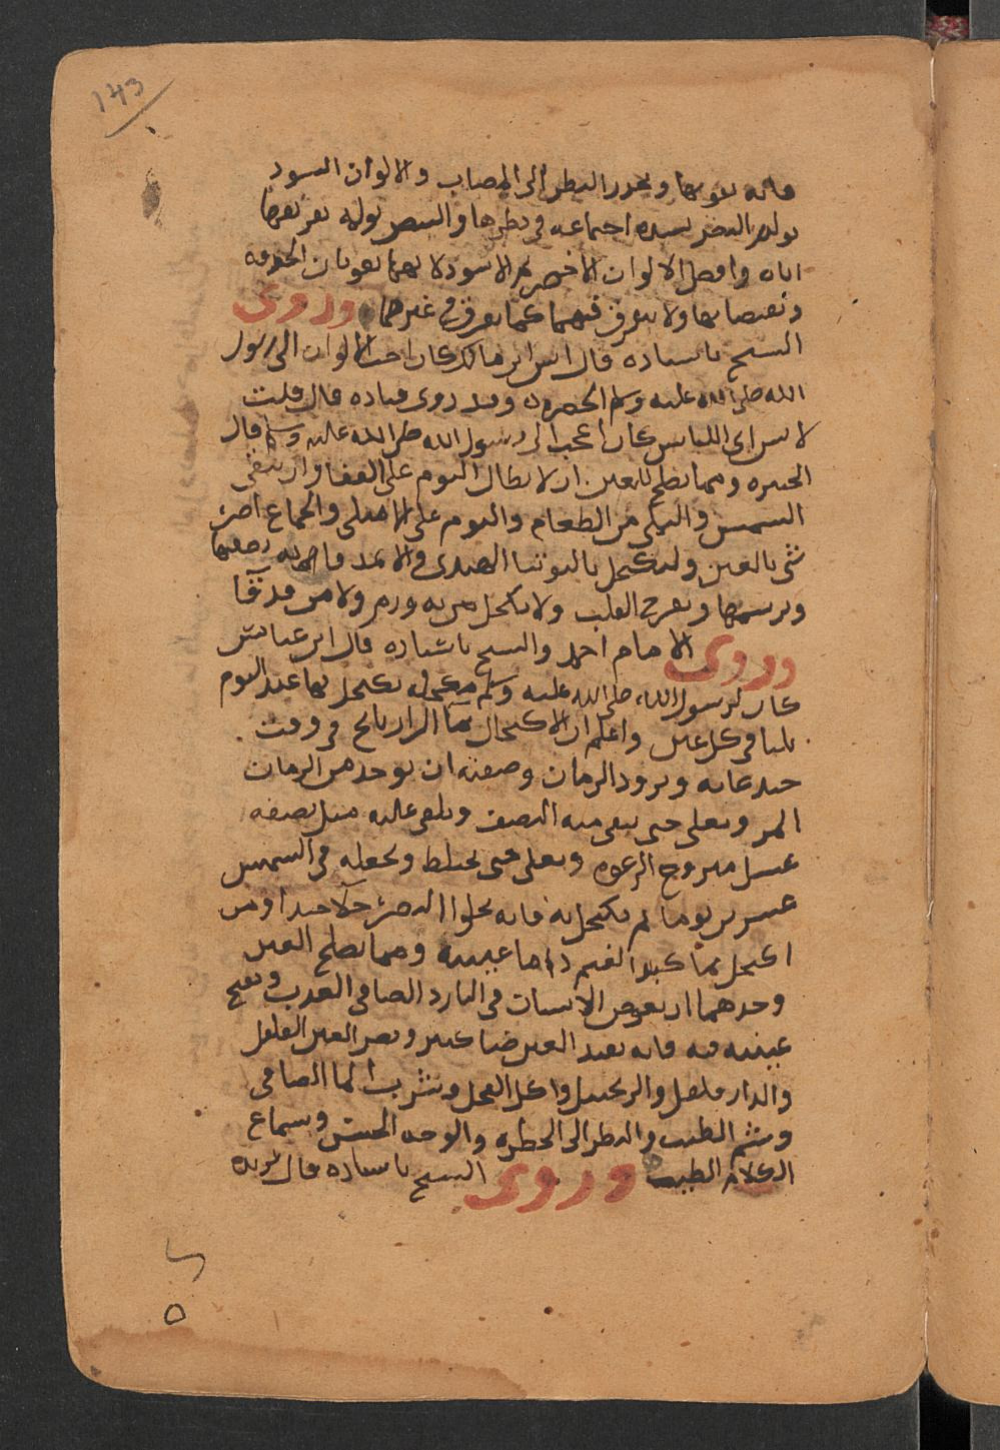 143
فانه يقويها ويحدد النظر الى المصاب والالوان السود
البصر لشدة اجتماعه في نظرها والبصر يوليه تفريقها
اياه وافضل الالوان الاخضر ثم الاسود لانهما يقويان الحدقة
ولا يتفرق فيهما كما يتفرق في غيرهما وروى
الشيخ باسناده قال انس بن مالك كان احب الالوان الى رسول
الله صلى الله عليه وسلم الخضرة وقد روى قتادة قال قلت
لانس اى اللباس كان اعجب الى رسول الله صلى الله عليه وسلم قال
الحبرة ومما يصلح للعين ان لا يطال النوم على القفا وان يتقى
الشمس والنوم على الامتلى والجماع اضر
شى بالعين وليكتحل بالتوتيا الهندى والاثمد فانه
القلب ولا يكتحل من به ورم ولا من قد تقيا
وروى الامام احمد والشيخ باسناده قال ابن عباس
كان لرسول الله صلى الله عليه وسلم مكحل يكتحل بها عند النوم
ثلثا في كل عين واعلم ان الاكتحال بما الرازيانج في وقت
جيد غايه وبرود الرمان وصفته ان يوخذ من الرمان
المر ويغلى حتى يبقى منه النصف ويلقى عليه مثل نصفه
عسل منزوع الرغوه ويغلى حتى يختلط ويجعله في الشمس
عشرين يوما ثم يكتحل به فانه يجلوا البصر جلا جيدا ومن
اكتحل بما كبد الغنم عينيه ومما يصلح العين
وحدهما ان يغوص الانسان في البارد الصافى العذب ويفتح
عينيه فيه فانه يفيد العين ضيا كثير ويضر العين الفلفل
والدار فلفل والزنجبيل واكل الفجل ويشرب الما الصافى
وشم الطيب والنظر الى الخضره والوجه الحسن وسماع
الكلام الطيب وروى الشيخ باسناده قال بريده